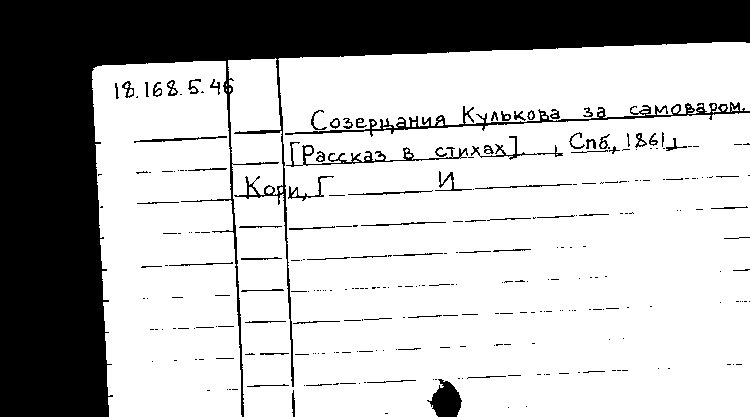 18.168.5.46
Созерцания Кулькова за самоваром.
[Рассказ в стихах]. Спб, 1861
Кори, Г И